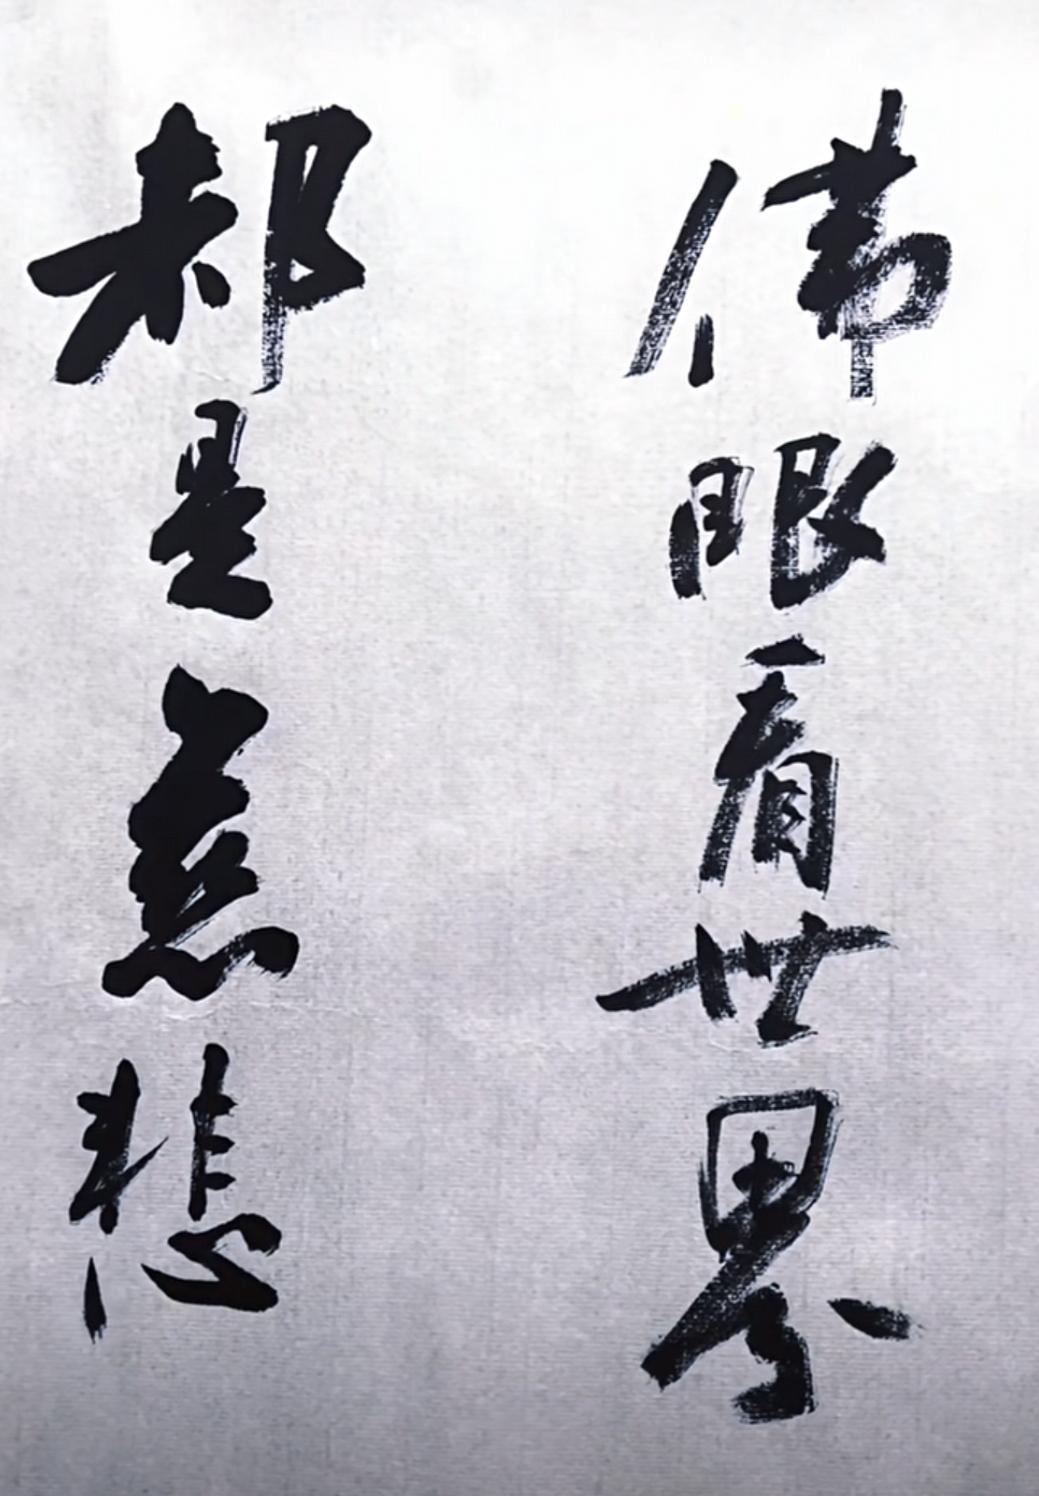 伟眼看世界
都是慈悲